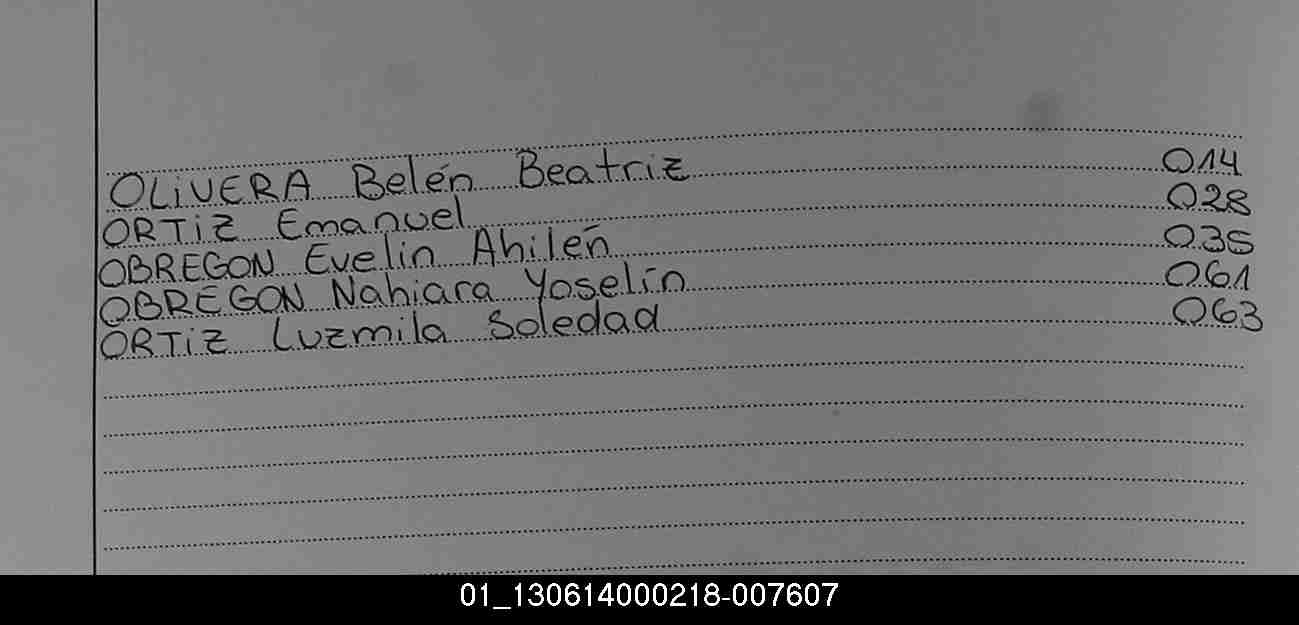 OLIVERA Belén Beatriz 014
ORTIZ Emanuel 028
OBREGON Evelin Ahilen 035
OBREGON Nahiara Yoselin 061
ORTIZ Luzmila Soledad 063
01_130614000218-007607